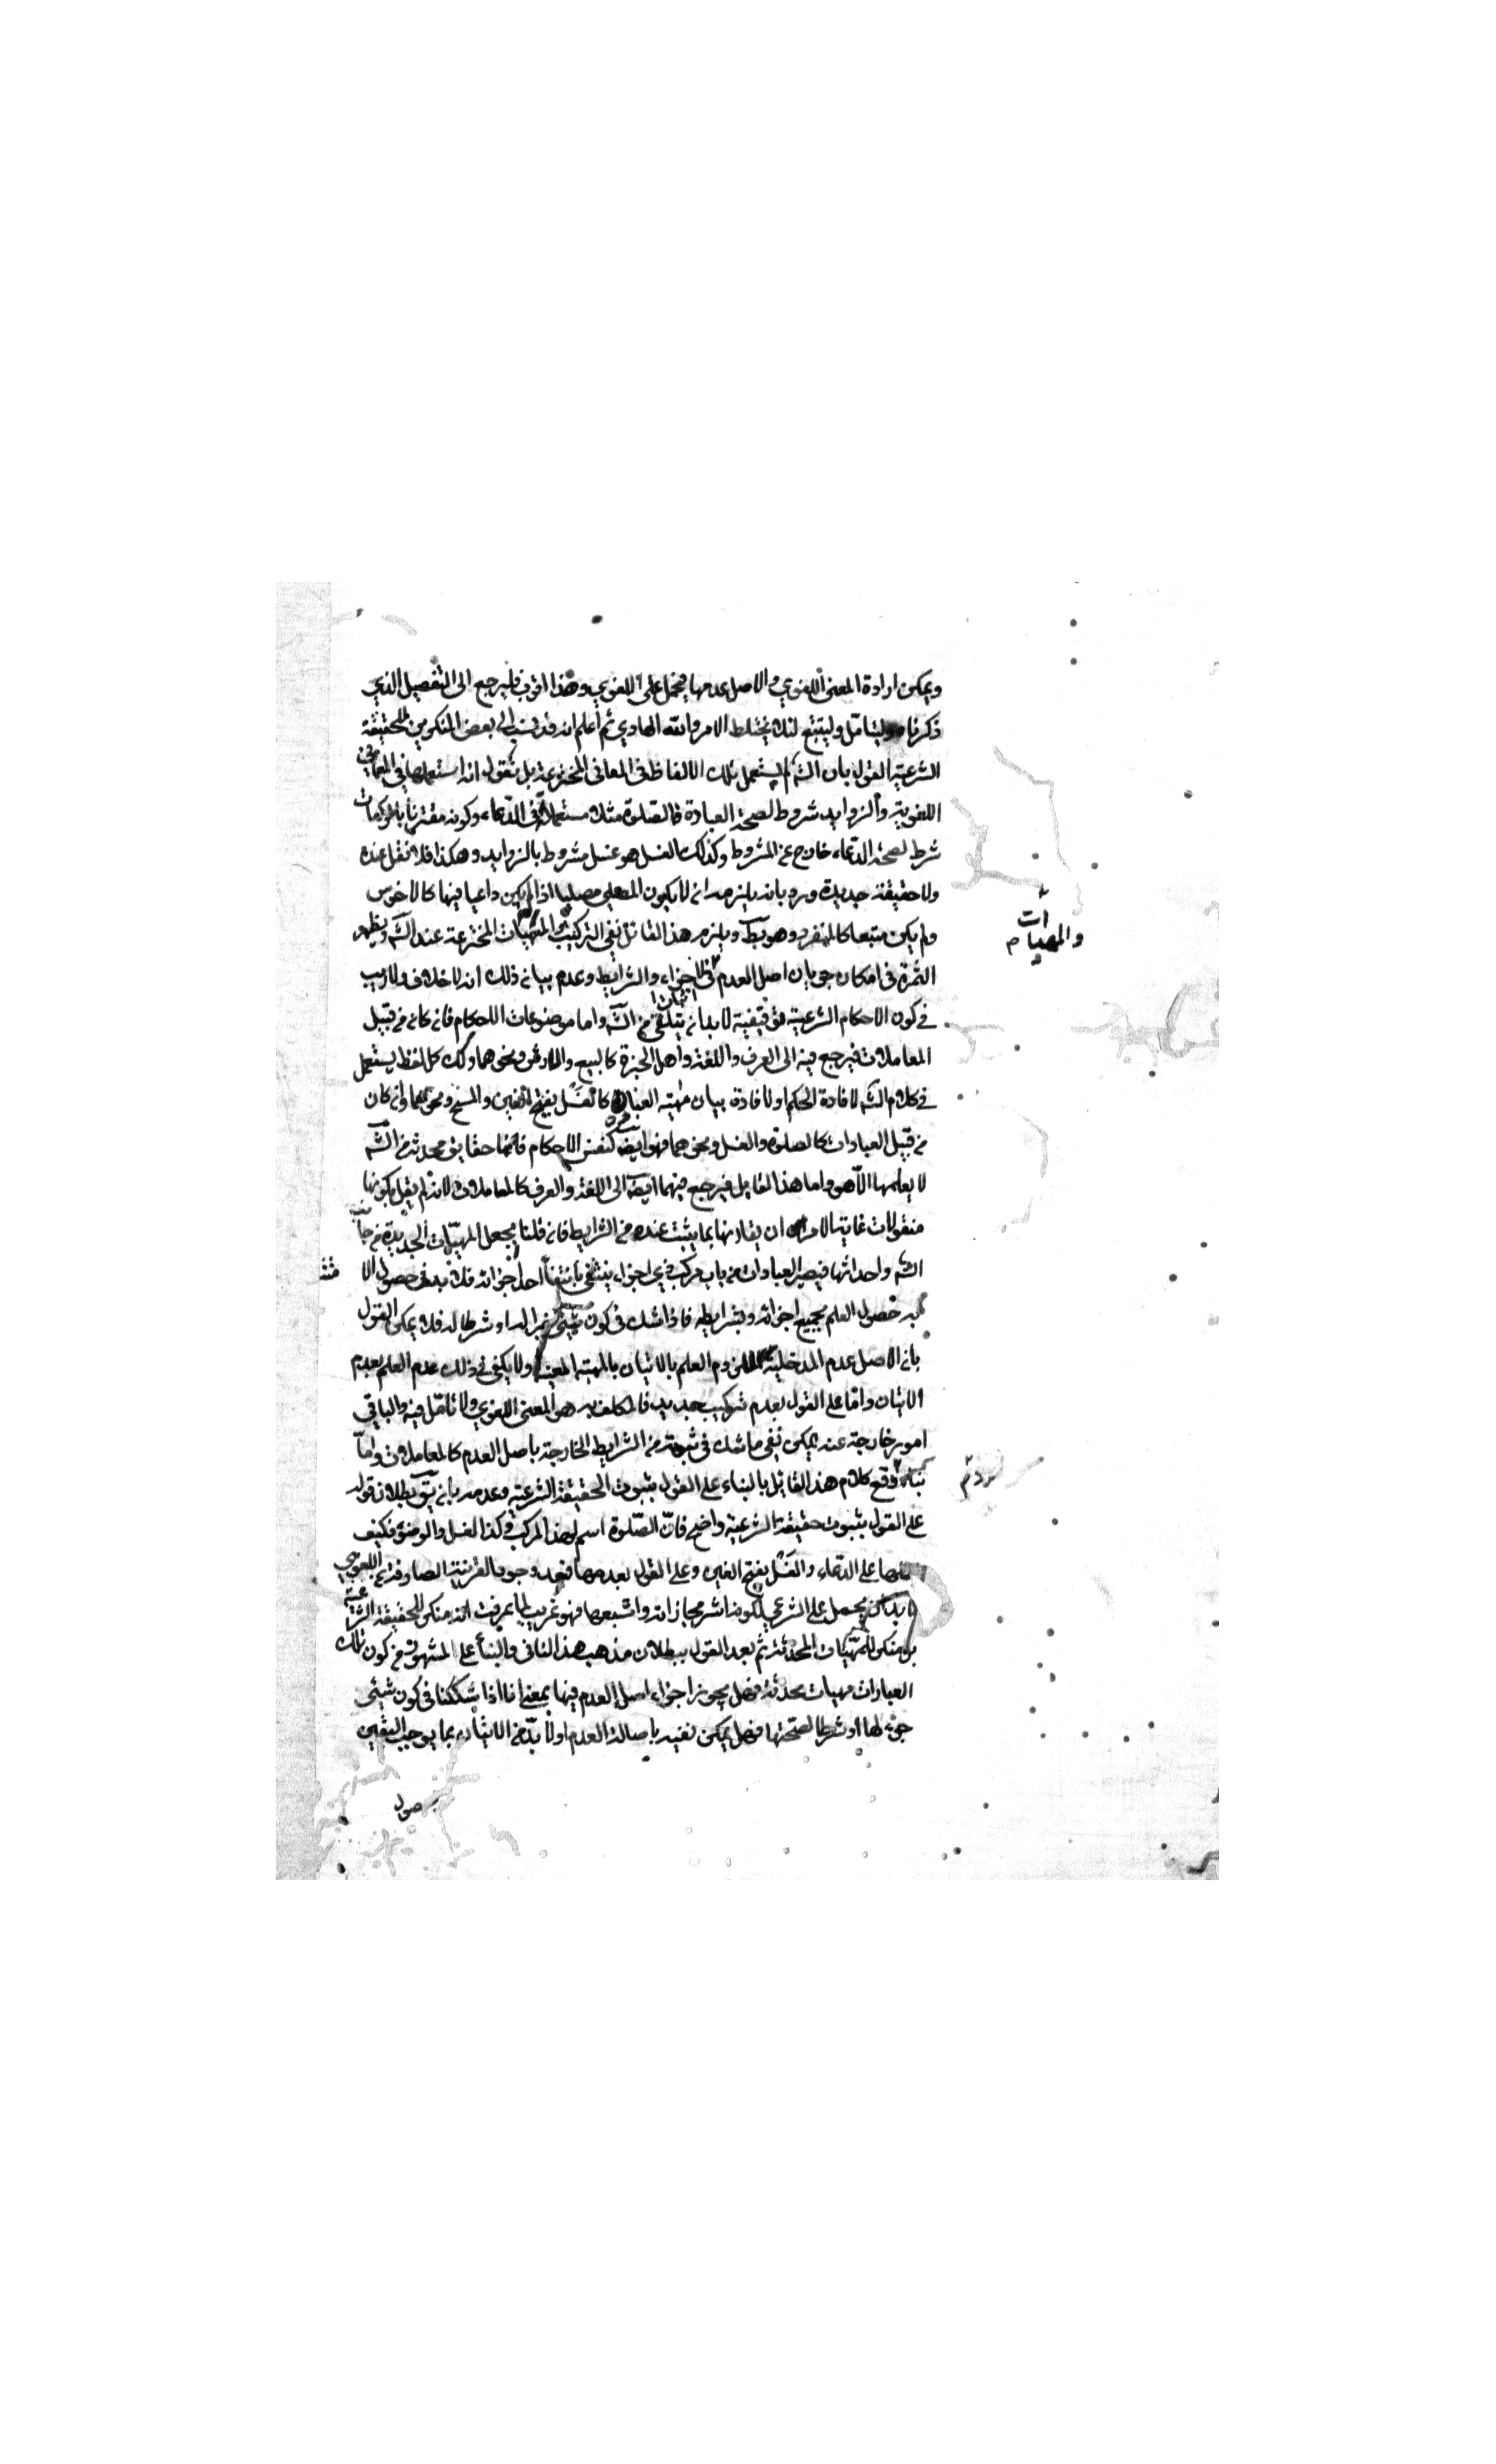 ويمكن ارادة المعنى اللغوي والاصل عدمها فيحمل على اللغوي وهذا اقرب فليرجع الى التفصيل الذي
ذكرناه وليتامّل وليتتبع لئلا يختلط الامر والله الهادي ثم اعلم انه قد نسب الى بعض المنكرين للحقيقة
الشرعية القول بان الشه لم يستعمل تلك الالفاظ في المعاني المخترعة بل نقول انه استعملها في المعاني
اللغوية والزوايد شروط لصحة العبادة فالصلوة مثلا مستعملة في الدعاء وكونه مقترنا بالركعات
شرط لصحة الدعاء خارج عن المشروط وكذلك الغسل هو غسل مشروط بالزوايد وهكذا فلا نقل عنده
ولا حقيقة جديدة ورد بانه يلزمه ان لا يكون المصلي مصليا اذا لم يكن داعيا فيها كالاخرس
ولم يكن متبعا كالمنفرد وهو بط ويلزم هذا القائل نفي التركيب والمهيات المخترعة عند الشه ويظهر
والمهيات
الثمرة في امكان جريان اصل العدم في الاجزاء والشرايط وعدم بيان ذلك انه لا خلاف ولا ريب
في كون الاحكام الشرعية توقيفية لا بد ان يتلقى من الشه واما موضوعات الاحكام فان كان من قبيل
المعاملات فيرجع فيه الى العرف واللغة واهل الخبرة كالبيع والارش ونحوهما وكك كل لفظ يستعمل
في كلام الشه لافادة الحكم او لافادة بيان مهية العبادة كالغسل بفتح الغين والمسح ونحوهما وان كان
من قبيل العبادات كالصلوة والغسل ونحوهما فهو ايضه كنفس الاحكام فانها حقايق محدثة من الشه
لا يعلمها الّا هو واما هذا القايل فيرجع فيهما ايضه الى اللغة والعرف كالمعاملات لانه لم يقل بكونها
منقولات غاية الامر ان يقارنها بما يثبت عنده من الشرايط فان قلنا بجعل المهيات الجديدة من جانب
الشه واحداثها فيصير العبادات من باب مركب ذي اجزاء ينتفي بانتفاء احد اجزائه فلا بد في حصول الا
به حصول العلم بجميع اجزائه وبشرايطه فاذا شك في كون شيئ جزء له او شرطا له فلا يمكن القول
بان الاصل عدم المدخلية للزوم العلم بالاتيان بالمهية المعينة ولا يكفي في ذلك عدم العلم بعدم
الاتيان واما على القول بعدم تركيب جديد فالمكلف به هو المعنى اللغوي ولا تامّل فيه والباقي
امور خارجة عنه يمكن نفي ما شك في ثبوته من الشرايط الخارجة باصل العدم كالمعاملات واما
وقع كلام هذا القائل بالبناء على القول بثبوت الحقيقة الشرعية وعدمه بان يق بطلان قوله
على القول بثبوت حقيقة الشرعية واضح فانّ الصّلوة اسم لهذا المركب وكذا الغسل والوضوء فكيف
يحملها على الدعاء والغَسل بفتح الغين وعلى القول بعدمها فبعد وجود القرينة الصارفة عن اللغوي
لا بد ان يحمل على الشرعي لكونه اشهر مجازاته واشيعها فهو غريب لما عرفت انه منكر للحقيقة الشرعية
بل منكر للمهيات المحدثة ثم بعد القول ببطلان مذهب هذا النافي والبناء على المشهور من كون تلك
العبادات مهيات محدثة فهل يجوز اجزاء اصل العدم فيها بمعنى انا اذا شككنا في كون شيئ
جزء لها او شرطا لصحتها فهل يمكن نفيه باصالة العدم او لا بدّ من الاتيان بما يوجب اليقين